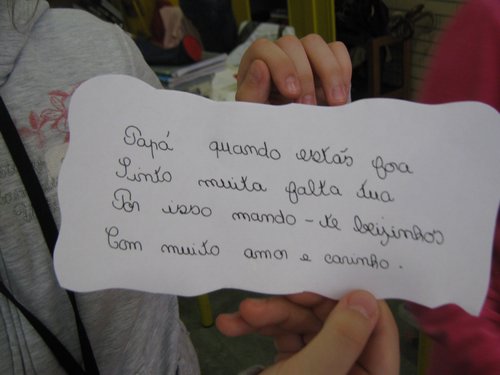 Papá quando estás fora
Sinto muita falta tua
Por isso mando-te beijinhos
Com muito amor e carinho.